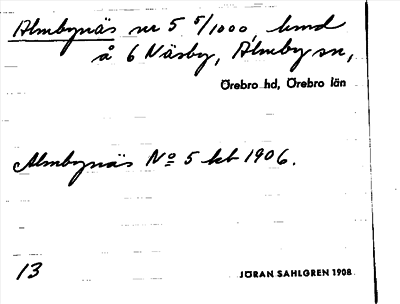 Almbynäs nr 5 5/1000, hmd
å 6 Näsby, Almby sn,
Örebro hd, Örebro län
Almbynäs No 5 kb 1906.
13
JÖRAN SAHLGREN 1908